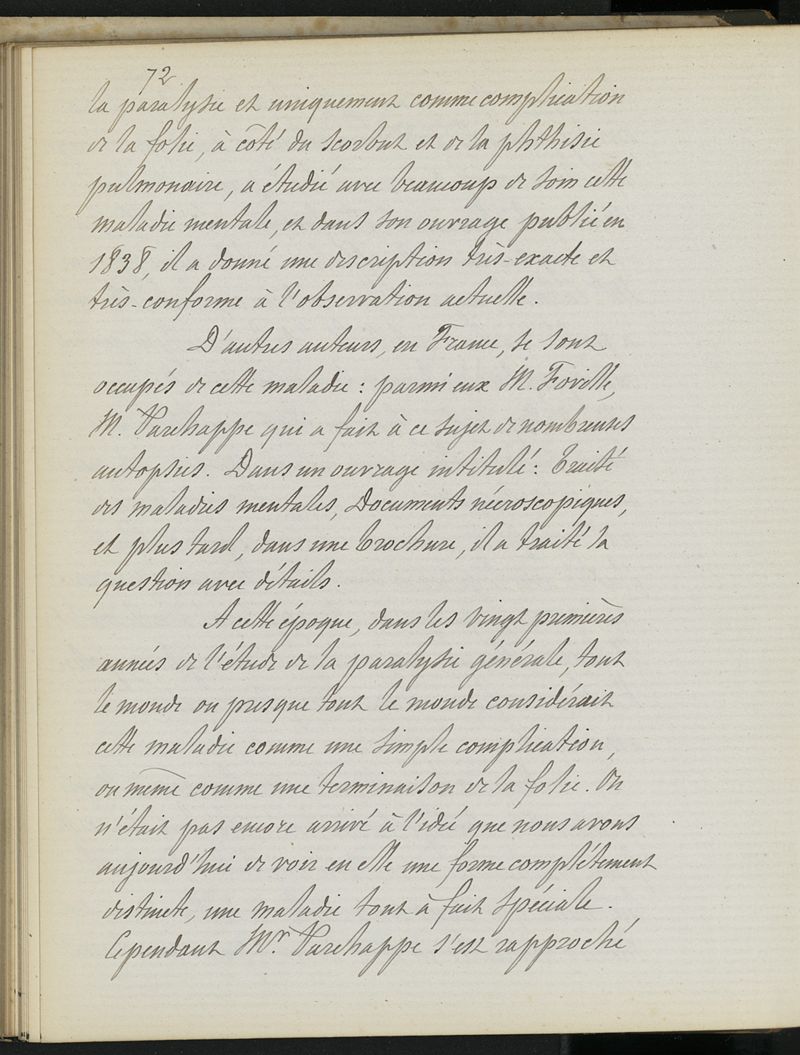 72
la paralysie et uniquement comme complication
de la folie, à côté du scorbut et de la phthisie
pulmonaire, a étudié avec beaucoup de soin cette
maladie mentale, et dans son ouvrage publié en
1838, il a donné une description très-exacte et
très-conforme à l'observation actuelle.
D'autres auteurs, en France, se sont
occupés de cette maladie : parmi eux M. Foville,
M. Parchappe qui a fait à ce sujet de nombreuses
autopsies. Dans un ouvrage intitulé : Traité
des maladies mentales, Documents nécroscopiques,
et plus tard, dans une brochure, il a traité la
question avec détails.
A cette époque, dans les vingt premières
années de l'étude de la paralysie générale, tout
le monde ou presque tout le monde considérait
cette maladie comme une simple complication,
ou même comme une terminaison de la folie. On
n'était pas encore arrivé à l'idée que nous avons
aujourd'hui de voir en elle une forme complétement
distincte, une maladie tout à fait spéciale.
Cependant Mr. Parchappe s'est rapproché